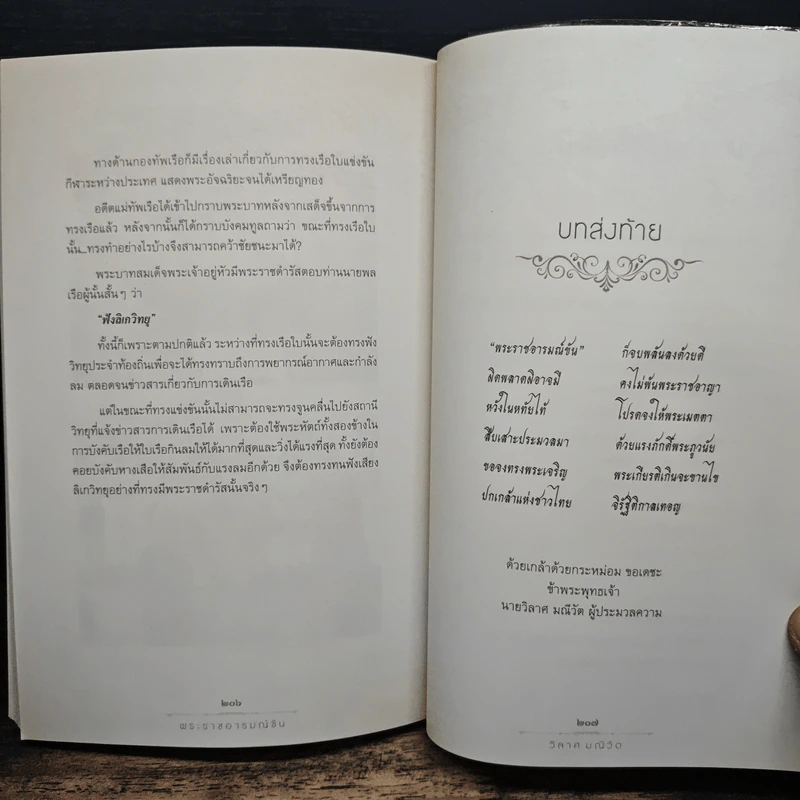 ทางด้านกองทัพเรือก็มีเรื่องเล่าเกี่ยวกับการทรงเรือใบแข่งขัน
กีฬาระหว่างประเทศ แสดงพระอัจฉริยะจนได้เหรียญทอง
อดีตแม่ทัพเรือได้เข้าไปกราบพระบาทหลังจากเสด็จขึ้นจากการ
ทรงเรือแล้ว หลังจากนั้นก็ได้กราบบังคมทูลถามว่า ขณะที่ทรงเรือใบ
นั้น...ทรงทำอย่างไรบ้างจึงสามารถคว้าชัยชนะมาได้?
พระบาทสมเด็จพระเจ้าอยู่หัวมีพระราชดำรัสตอบท่านนายพล
เรือผู้นั้นสั้นๆ ว่า
"ฟังลิเกวิทยุ"
ทั้งนี้ก็เพราะตามปกติแล้ว ระหว่างที่ทรงเรือใบนั้นจะต้องทรงฟัง
วิทยุประจำท้องถิ่นเพื่อจะได้ทรงทราบถึงการพยากรณ์อากาศและกำลัง
ลม ตลอดจนข่าวสารเกี่ยวกับการเดินเรือ
แต่ในขณะที่ทรงแข่งขันนั้นไม่สามารถจะทรงจูนคลื่นไปยังสถานี
วิทยุที่แจ้งข่าวสารการเดินเรือได้ เพราะต้องใช้พระหัตถ์ทั้งสองข้างใน
การบังคับเรือให้ใบเรือกินลมให้ได้มากที่สุดและวิ่งได้แรงที่สุด ทั้งยังต้อง
คอยบังคับหางเสือให้สัมพันธ์กับแรงลมอีกด้วย จึงต้องทรงทนฟังเสียง
ลิเกวิทยุอย่างที่ทรงมีพระราชดำรัสนั้นจริงๆ
๒๐๖
พระราชอารมณ์ขัน
บทส่งท้าย
"พระราชอารมณ์ขัน" ก็จบพลันลงด้วยดี
ผิดพลาดมิอาจมี คงไม่พ้นพระราชอาญา
หวังในหทัยไท้ โปรดจงให้พระเมตตา
สืบเสาะประมวลมา ด้วยแรงภักดิ์พระภูวนัย
ขอจงทรงพระเจริญ พระเกียรติเกินจะขานไข
ปกเกล้าแห่งชาวไทย จิรัฐิติกาลเทอญ
ด้วยเกล้าด้วยกระหม่อม ขอเดชะ
ข้าพระพุทธเจ้า
นายวิลาศ มณีวัต ผู้ประมวลความ
๒๐๗
วิลาศ มณีวัต